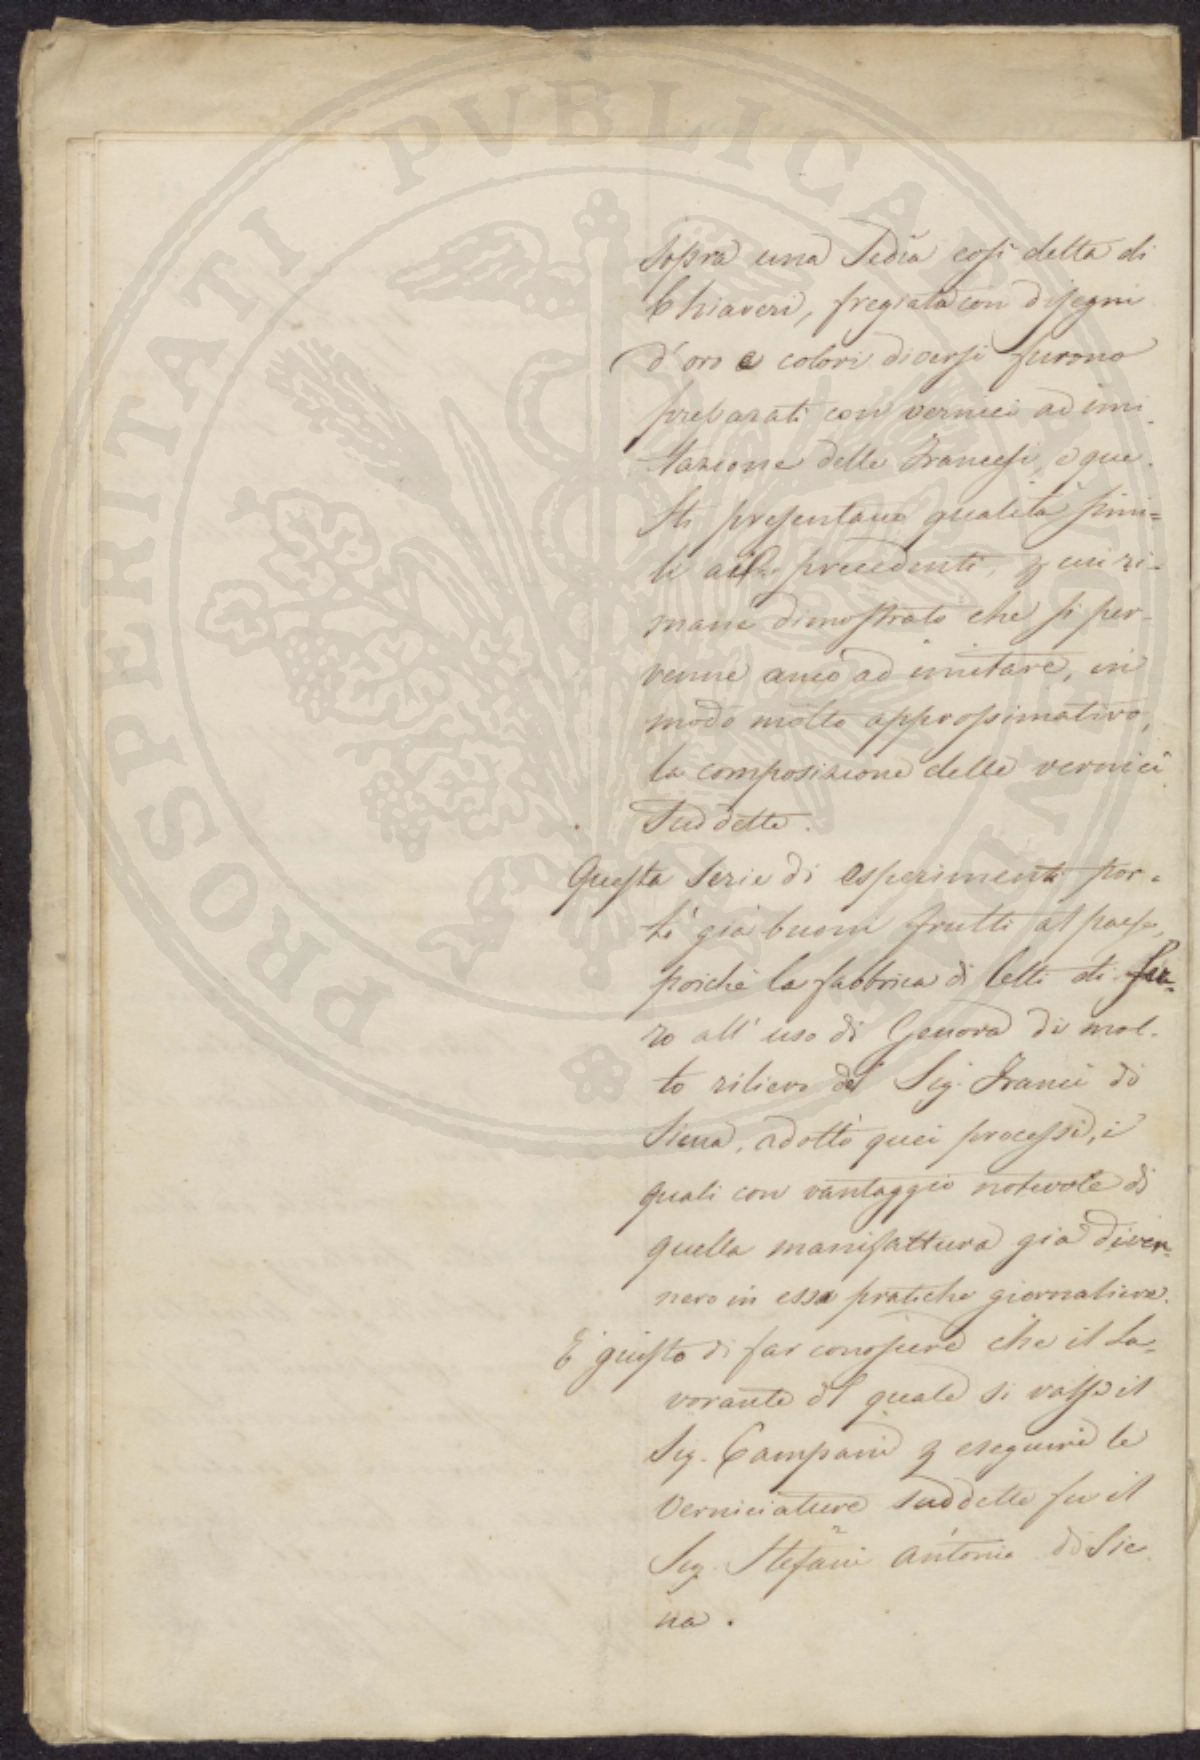 Sopra una Sedia così detta di
Chiaveri, fregiata con disegni
d'oro e colori diversi furono
preparati con vernici ad imi-
tazione delle Francesi, e que-
sti presentano qualità simi-
li ai precedenti, p cui ri-
mane dimostrato che si per-
venne anco ad imitare, in
modo molto approssimativo,
la composizione delle vernici
Suddette.
Questa Serie di esperimenti por-
tò già buoni frutti al paese,
poichè la fabbrica di letti di fer-
ro all'uso di Genova di mol-
to rilievo del Sig. Franci di
Siena, adottò quei processi, i
quali con vantaggio notevole di
quella manifattura già diven-
nero in essa pratiche giornaliere.
È giusto di far conoscere che il La-
vorante del quale si valse il
Sig. Campani p eseguire le
Verniciature suddette fu il
Sig. Stefani Antonio di Sie
na.
PROSPERITATI PVBLICAE